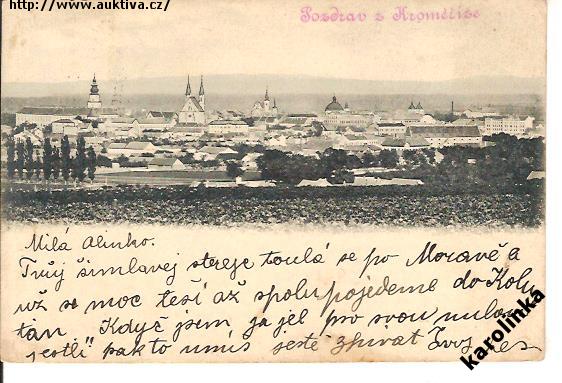 http://www.auktiva.cz/
Pozdrav z Kroměříže
Milá Alinko.
Tvůj šimlavej streje toulá se po Moravě a
už se moc těší až spolu pojedeme do Kolu
tan. Kdyč jsem ja jel pro svou
jestli pak to umíš jestě zpívat
karolinka